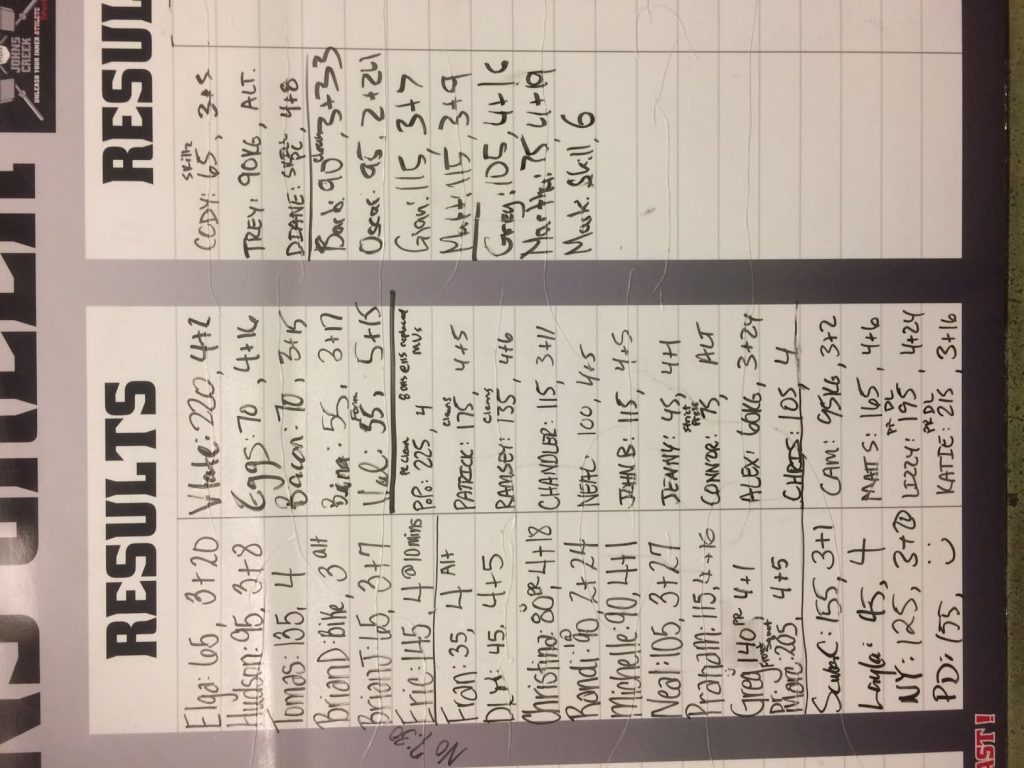 JOHNS
CREEK
UNLEASH YOUR INNER ATHLETE
RESULTS
Elga: 65, 3+20
Hudson: 95, 3+8
Tomas: 135, 4
Brian D: bike, 3 alt
Brian T: 65, 3+7
Eric: 145, 4 @10mins
No 7:30
Fran: 35, 4 Alt
4+5
Christina: 80# PR, 4+18
Randi: 90, 2+24
Michelle: 90, 4+1
Neal: 105, 3+27
Pranam: 115, 4+16
Greg 140 PR 4+1
Marc: 205, 4+5
155, 3+1
Layla: 95, 4
NY: 125, 3+20
PD: 155, :)
Vitale: 220, 4+2
Eggs: 70, 4+16
Bacon: 70, 3+15
55, 3+17
Val: 55, 5+15
Pop: 225, 4
MVs
Patrick: 175, 4+5
Cleans
Ramsey: 135, 4+6
Cleans
Chandler: 115, 3+11
Neal: 100, 4+5
John B: 115, 4+5
Jenny: 45, 4+1
Connor: 75, ALT
Alex: 60KG, 3+24
Chris: 105, 4
Cam: 95KG, 3+2
Matt S: 165, 4+6
Lizzy: 195, 4+24
Katie: 215, 3+16
RESUL
Skillz
Cody: 65, 3+5
Trey: 90KG, ALT.
Deane: 4+8
Bard: 90, 3+33
Oscar: 95, 2+24
115, 3+7
Matt: 115, 3+9
Greg: 105, 4+16
Martha: 75, 4+19
Mark: Skill, 6
AST!